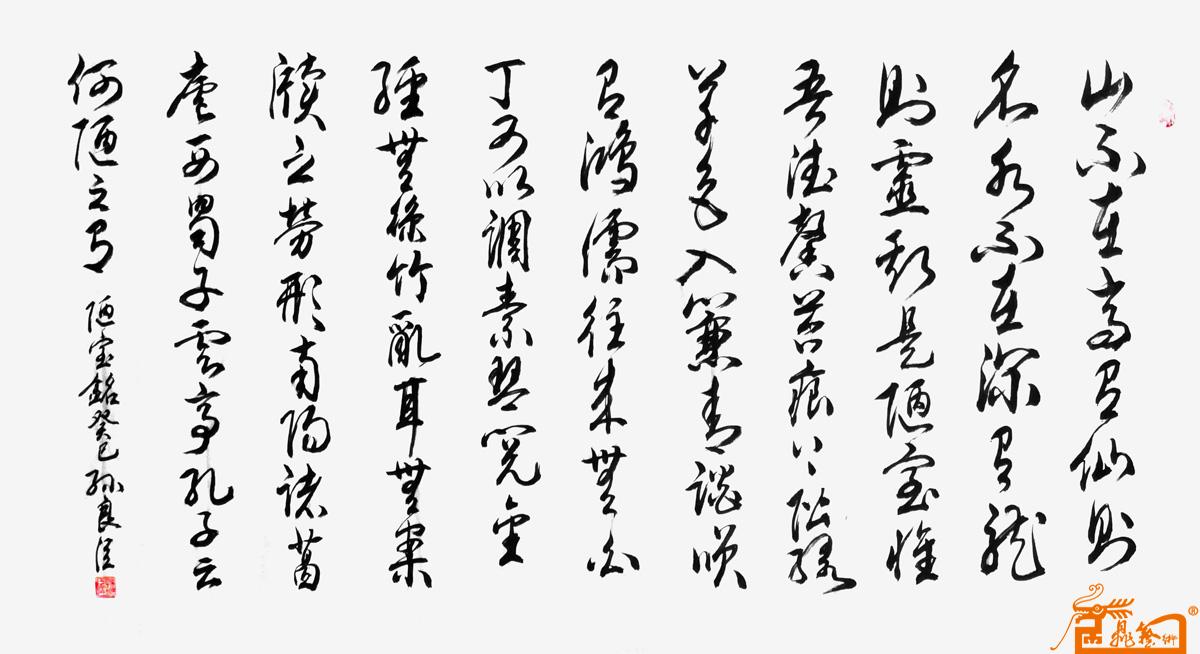 山不在高有仙則
名水不在深有龍
則靈斯是陋室惟
吾德馨苔痕上階綠
草色入簾青談咲
有鴻儒往来無白
丁可以調素琴閱金
經無絲竹亂耳無案
牘之勞形南陽諸葛
廬西蜀子雲亭孔子云
何陋之有 陋室銘癸巳孫良